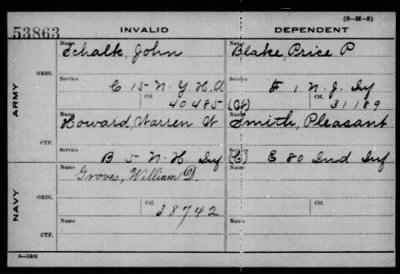 (3-H-5)
53863 INVALID DEPENDENT
ARMY
ORIG.
Name Schalk, John
Name Blake, Price P
Service C 15 - N.Y.H.A
Service F 1 N.J. Inf
Ctf. 40485
(Cf) Ctf. 31189
CTF.
Name Howard, Warren W
Name Smith, Pleasant
Service B 5 - N.H. Inf
Service (C) E 80 Ind Inf
NAVY
ORIG.
Name Groves, William D.
Name
Ctf. 38742
Ctf.
CTF.
Name
Name